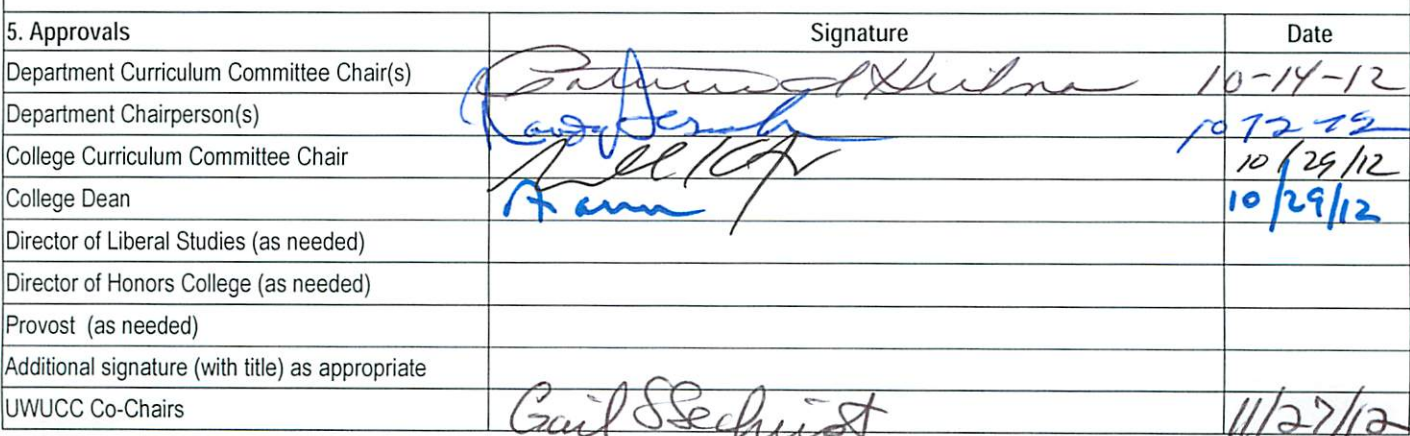 5. Approvals Signature Date
Department Curriculum Committee Chair(s) 10-14-12
Department Chairperson(s)
College Curriculum Committee Chair 10/29/12
College Dean 10/29/12
Director of Liberal Studies (as needed)
Director of Honors College (as needed)
Provost (as needed)
Additional signature (with title) as appropriate
UWUCC Co-Chairs Gail S Sechrist 11/27/12